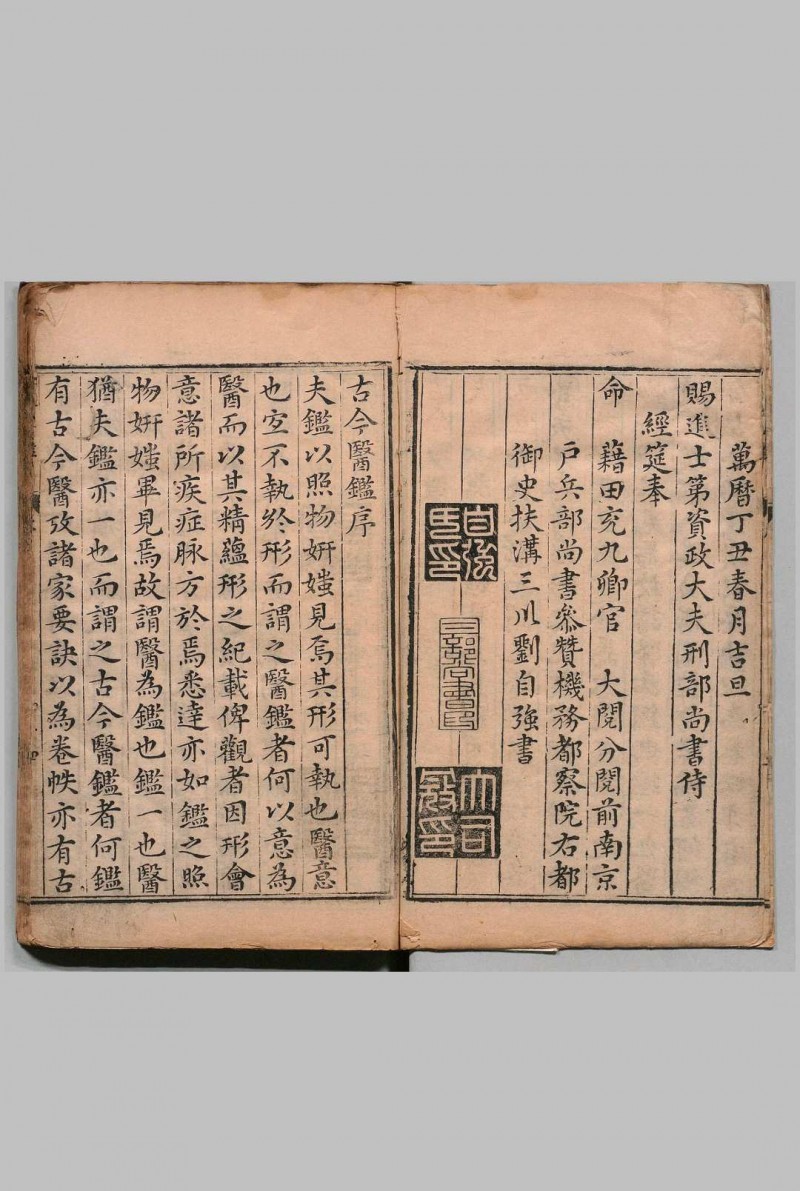 萬曆丁丑春月吉旦
賜進士第資政大夫刑部尚書侍
經筵奉
命 藉田充九卿官 大閱分閱前南京
戶兵部尚書叅贊機務都察院右都
御史扶溝三川劉自強書
自強
之印
大司
寇印
古今醫鑑序
夫鑑以照物妍媸見焉其形可執也醫意
也宐不執於形而謂之醫鑑者何以意為
醫而以其精蘊形之紀載俾觀者因形會
意諸所疾症脉方於焉悉達亦如鑑之照
物妍媸畢見焉故謂醫為鑑也鑑一也醫
猶夫鑑亦一也而謂之古今醫鑑者何鑑
有古今醫攷諸家要訣以為卷帙亦有古